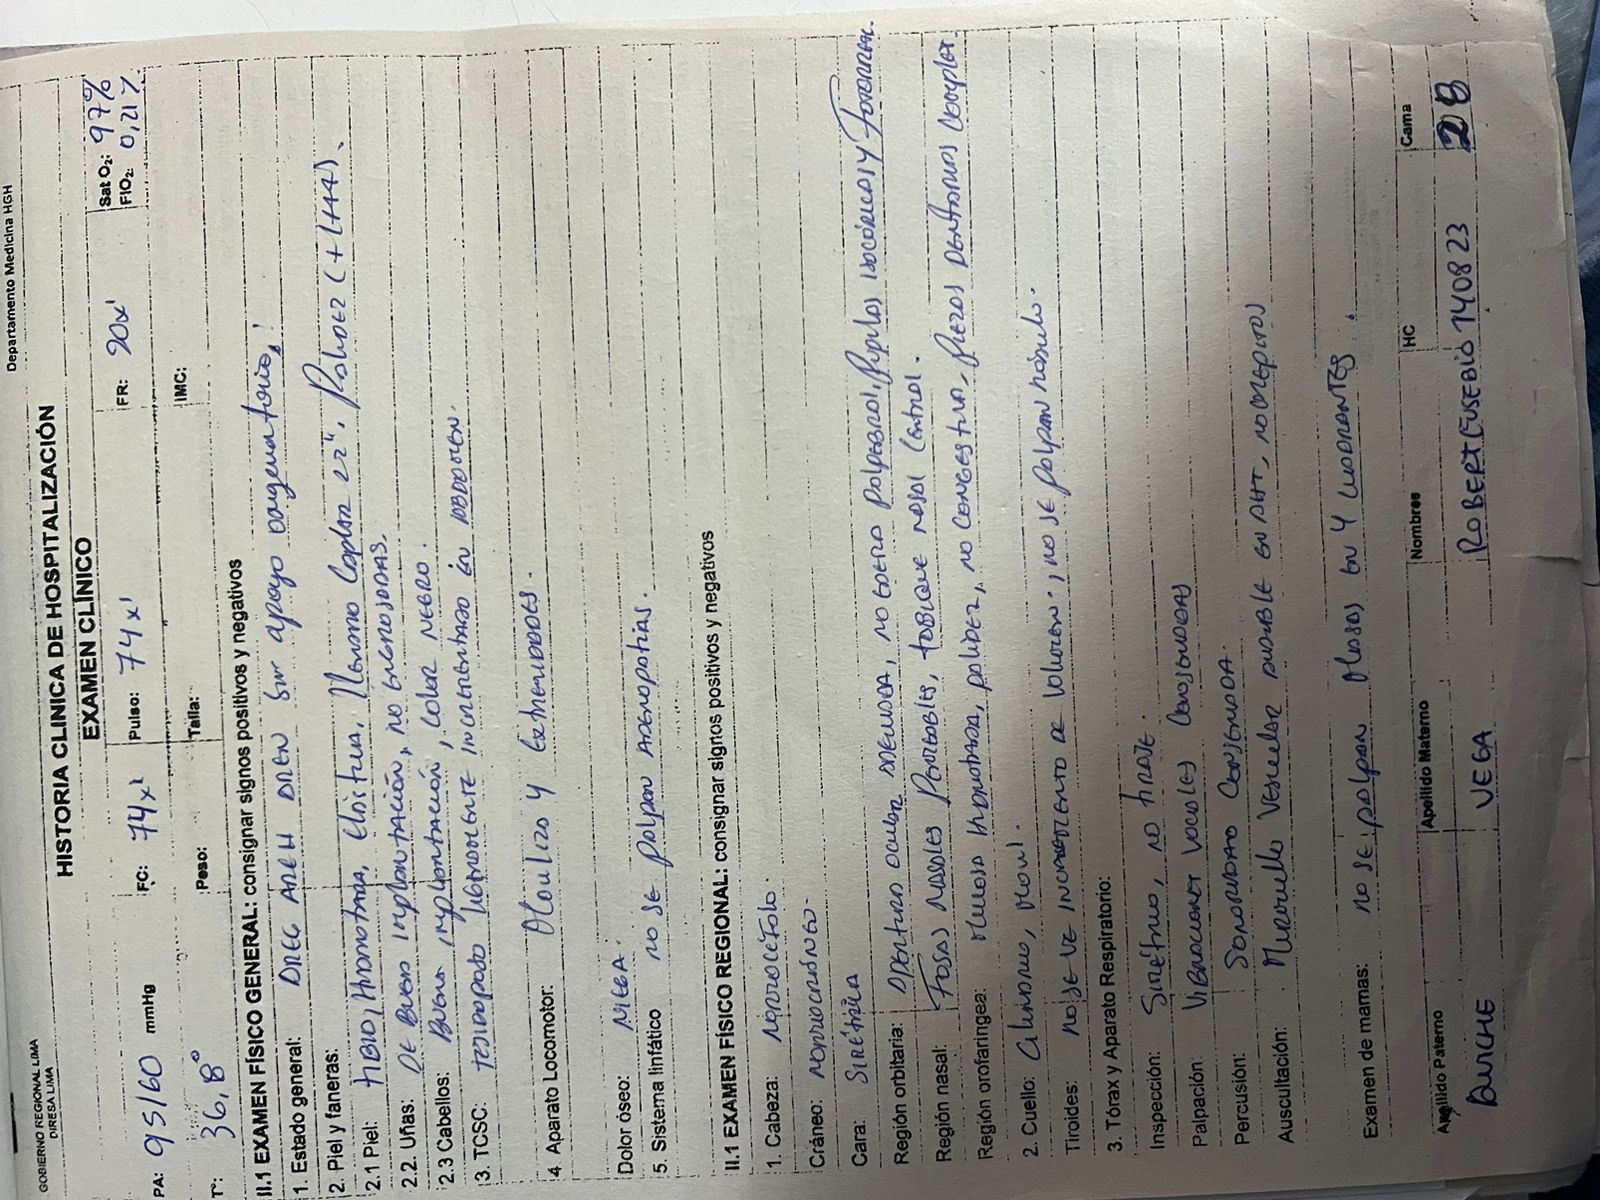 GOBIERNO REGIONAL LIMA
DIRESA LIMA
Departamento Medicina HGH
HISTORIA CLINICA DE HOSPITALIZACIÓN
EXAMEN CLÍNICO
PA: 95/60 mmHg FC: 74x' Pulso: 74x' FR: 20x' Sat O₂: 97%
FIO₂: 0,21%
T°: 36,8° Peso: Talla: IMC:
II.1 EXAMEN FÍSICO GENERAL: consignar signos positivos y negativos
1. Estado general: AREG AREH AREN Sin apoyo oxigenatorio
2. Piel y faneras:
2.1 Piel: TIBIO, HIDRATADA, Elástica, Llenado Capilar <2". PALIDEZ (++/+++).
2.2. Uñas: DE BUENA IMPLANTACIÓN, NO ENGROSADAS.
2.3 Cabellos: BUENA IMPLANTACIÓN, COLOR NEGRO.
3. TCSC: INCREMENTADO EN ABDOMEN.
4. Aparato Locomotor: Moviliza 4 EXTREMIDADES.
Dolor óseo: NIEGA.
5. Sistema linfático NO SE PALPAN ADENOPATIAS.
II.1 EXAMEN FÍSICO REGIONAL: consignar signos positivos y negativos
1. Cabeza: NORMOCÉFALO.
Cráneo: NORMOCRÁNEO.
Cara: SIMÉTRICA
Región orbitaria: APERTURA OCULAR ADECUADA, NO EDEMA PALPEBRAL, Pupilas ISOCÓRICAS Y FOTORREAC.
Región nasal: FOSAS NASALES PERMEABLES, TABIQUE NASAL CENTRAL.
Región orofaringea: Mucosa HIDRATADA, PALIDEZ, NO CONGESTIVA, PIEZAS DENTARIAS COMPLET.
2. Cuello: CILINDRICO, MOVIL.
Tiroides: NO SE VE INCREMENTO DE VOLUMEN, NO SE PALPAN NÓDULO.
3. Tórax y Aparato Respiratorio:
Inspección: SIMÉTRICO, NO TIRAJE.
Palpación: VIBRACIONES VOCALES CONSERVADAS
Percusión: SONORIDAD CONSERVADA.
Auscultación: Murmullo VESICULAR AUDIBLE EN AHT, NO CREPITOS
Examen de mamas: NO SE PALPAN MASAS EN 4 CUADRANTES.
Apellido Paterno Apellido Materno Nombres HC Cama
VEGA ROBERT EUSEBIO 140823 28